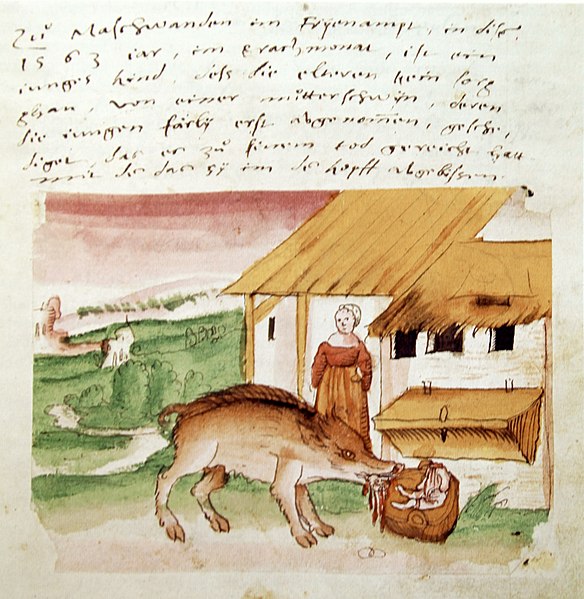 Zů Maschwanden im Fryenampt, in disem
1563 iar, im Brachmonat, ist ein
iunges kind, dess die elteren kein sorg
ghan, von einer můtterschwyn, deren
die iungen färly erst abgenom̄en, gesche,
diget, das es zů sinem tod gereicht hatt
mit de das sy im de kopff abgebissen.